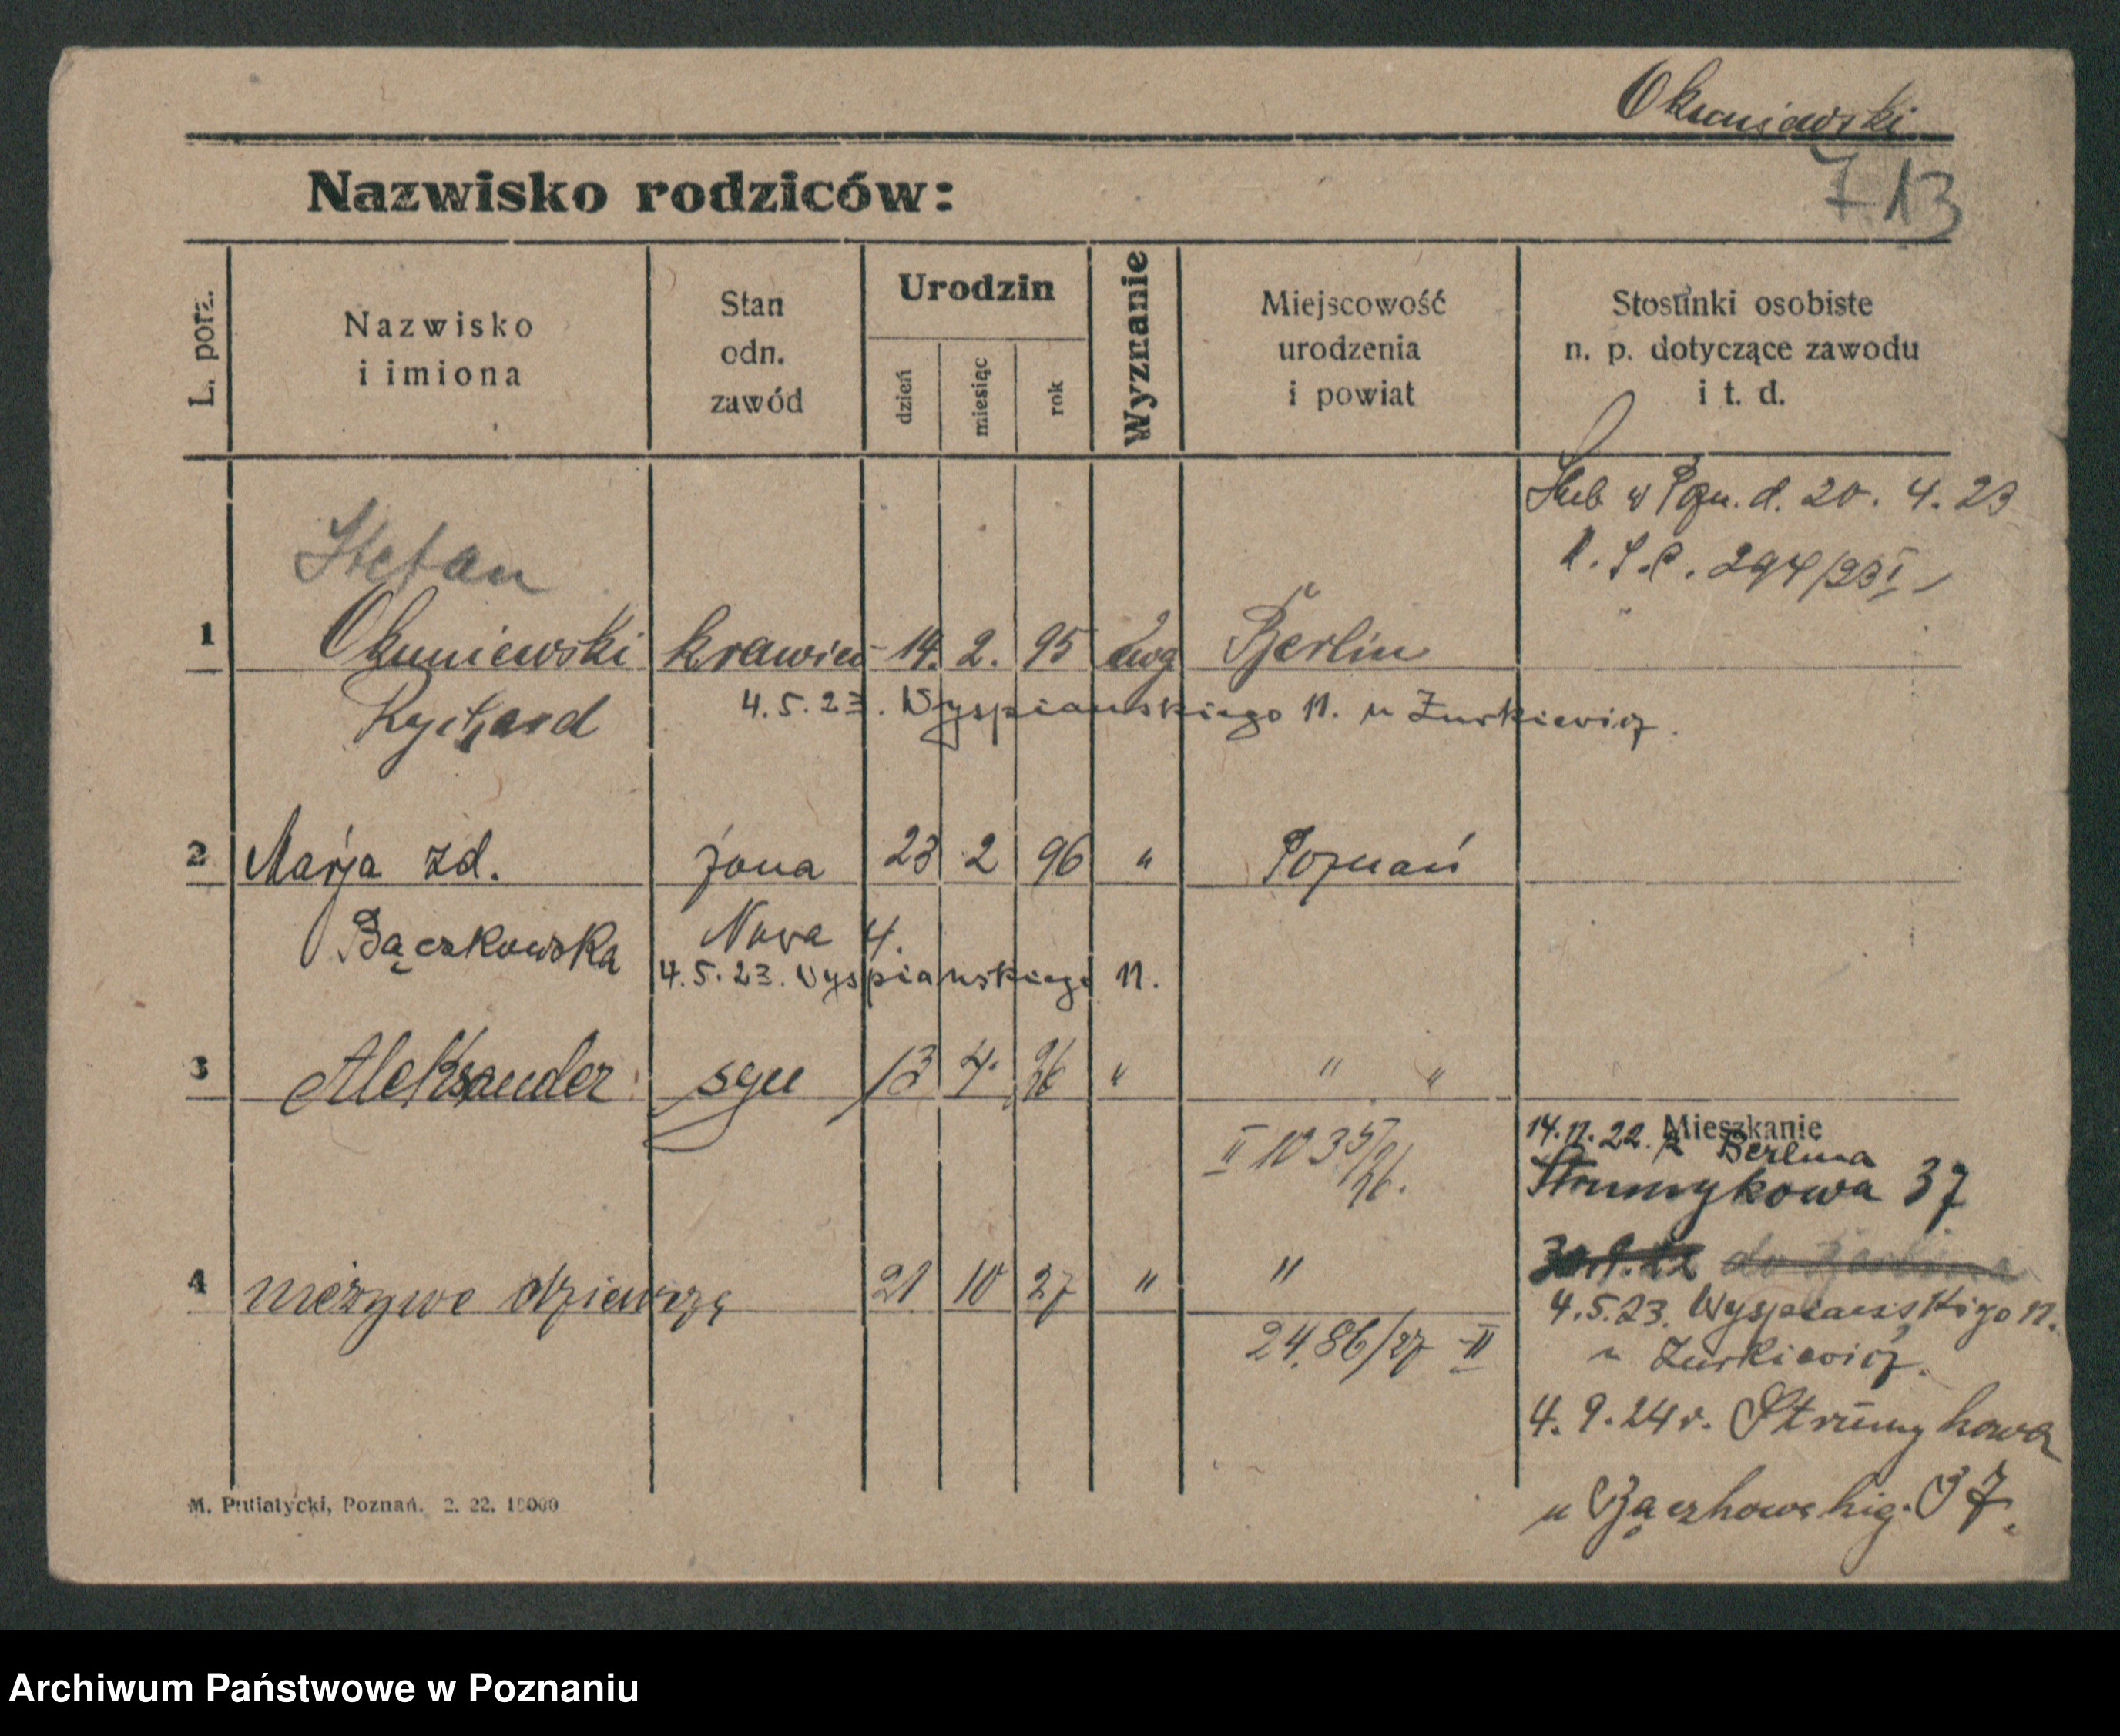 Okuniewski
Nazwisko rodziców:
713
L. porz.
Nazwisko
i imiona
Stan
odn.
zawód
Urodzin
dzień
miesiąc
rok
Wyznanie
Miejscowość
urodzenia
i powiat
Stosunki osobiste
n. p. dotyczące zawodu
i t. d.
Ślub w Pozn. d. 20. 4. 23
R. S. C. 294/23 I
Stefan
1 Okuniewski krawiec 14. 2. 95 ewg Berlin
Ryszard 4.5.23. Wyspiańskiego 11. u Żurkiewicz.
2 Marja zd. żona 23 2 96 " Poznań
Bączkowska Nowa 4.
4.5.23. Wyspiańskiego 11.
3 Aleksander syn 13 4. 26 " " "
II 1035/26.
Mieszkanie
14.11.22. z Berlina
Strumykowa 37
4 nieżywe dziewczę 21 10 27 " "
do Berlina
4.5.23. Wyspiańskiego 11.
u Żurkiewicz.
2486/27 II
4. 9. 24 r. Strumykowa
u Bączkowskieg. 37.
M. Putiatycki, Poznań. 2. 22. 10000
Archiwum Państwowe w Poznaniu